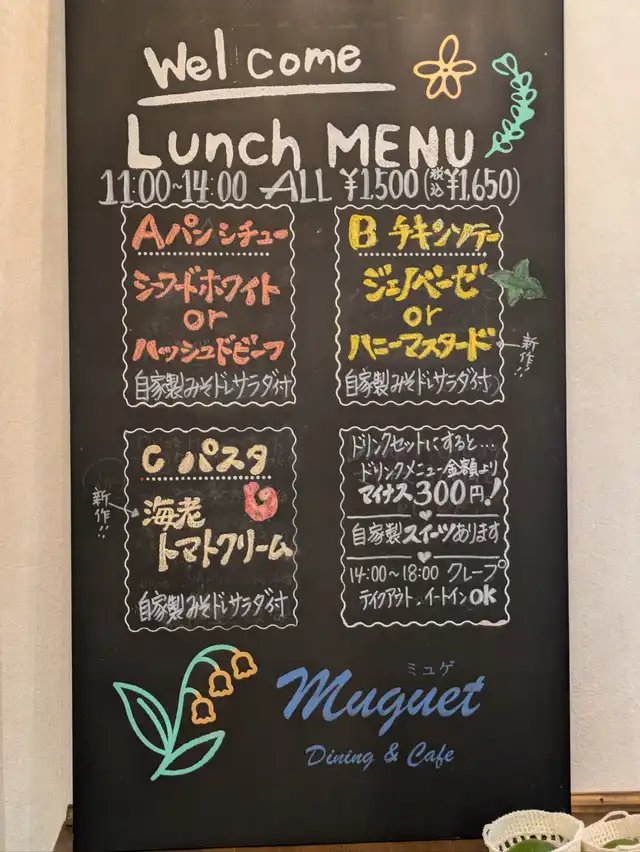 Welcome
Lunch MENU
11:00~14:00 ALL ¥1,500(税込¥1,650)
A パンシチュー
シーフードホワイト
or
ハッシュドビーフ
自家製みそドレサラダ付
B チキンソテー
ジェノベーゼ
or
ハニーマスタード
新作!!
自家製みそドレサラダ付
C パスタ
新作!!
海老
トマトクリーム
自家製みそドレサラダ付
ドリンクセットにすると...
ドリンクメニュー金額より
マイナス300円!
自家製スイーツあります
14:00~18:00 クレープ
テイクアウト、イートインOK
ミュゲ
Muguet
Dining & Cafe